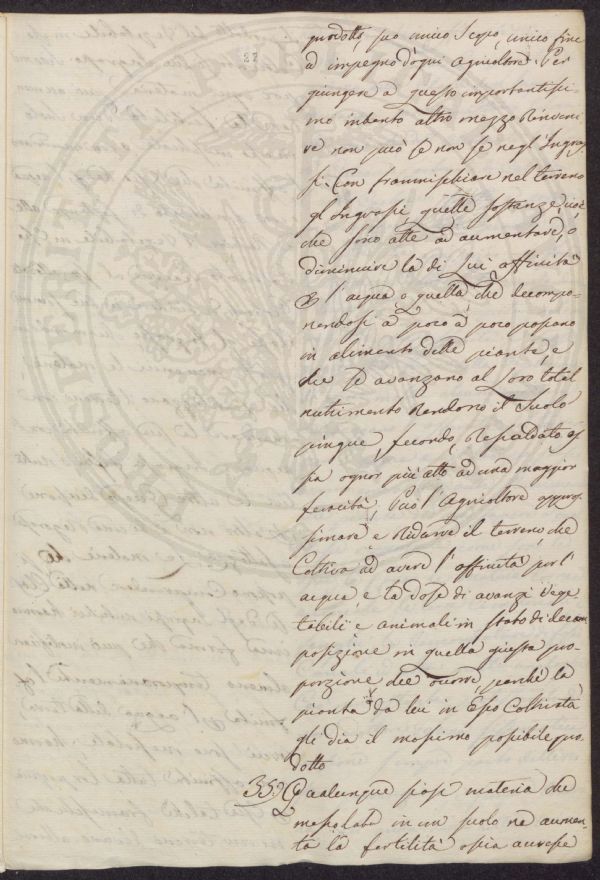 22
prodotto, suo unico scopo, unico fine
ed impegno d'ogni agricoltore. Per
giungere a questo importantissi-
mo intento altro mezzo rinveni-
re non può se non se negl'Ingras-
si. Con frammischiare nel terreno
gl'Ingrassi, quelle sostanze, cioè
che sono atte ad aumentare, o
diminuire la di lui affinità
l'acqua, o quella, che decompo-
nendosi a poco a poco passano
in alimento delle piante, e
che se avanzano al loro total
nutrimento rendono il suolo
pingue, fecondo, respaldato
sa ognor più atto ad una maggior
feracità, può l'agricoltore appros-
simare, e ridurre il terreno, che
coltiva ad avere l'affinità per l'
acqua, e la dose di avanzi vege-
tabili e animali in stato di decom-
posizione in quella giusta pro-
porzione che occorre, perchè la
pianta da lui in esso coltivata
gli dia il massimo possibile pro-
dotto
35.° Qualunque siasi materia che
mescolata in un suolo ne aumen-
ta la fertilità ossia accresce